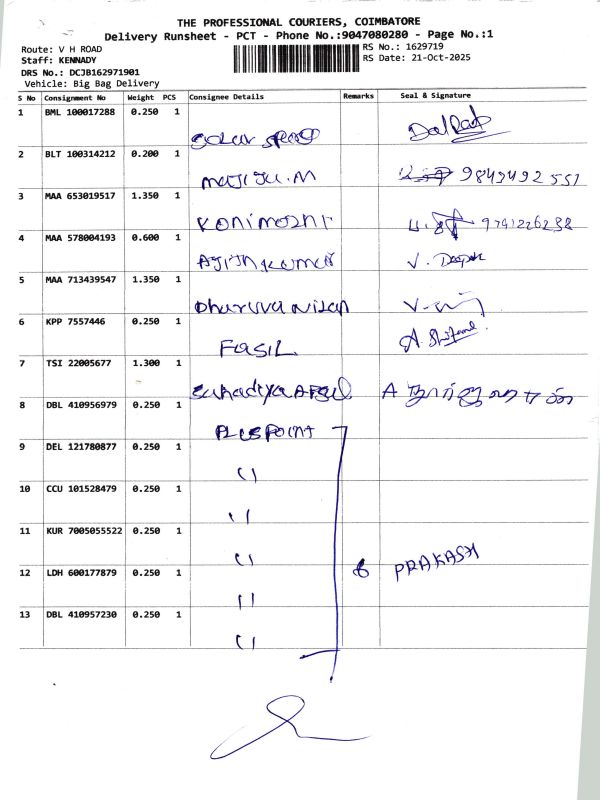 THE PROFESSIONAL COURIERS, COIMBATORE
Delivery Runsheet - PCT - Phone No.:9047080280 - Page No.:1
Route: V H ROAD
RS No.: 1629719
Staff: KENNADY
RS Date: 21-Oct-2025
DRS No.: DCJB162971901
Vehicle: Big Bag Delivery
S No Consignment No Weight PCS Consignee Details Remarks Seal & Signature
1 BML 100017288 0.250 1
2 BLT 100314212 0.200 1 MUJIJU.M 9843492551
3 MAA 653019517 1.350 1 KONIMOZHI 9741226238
4 MAA 578004193 0.600 1 AJITHKUMAR V. Deepak
5 MAA 713439547 1.350 1 DHARUVANILAN
6 KPP 7557446 0.250 1 FASIL
7 TSI 22005677 1.300 1
8 DBL 410956979 0.250 1 PLUSPOINT
9 DEL 121780877 0.250 1 "
10 CCU 101528479 0.250 1 "
11 KUR 7005055522 0.250 1 "
12 LDH 600177879 0.250 1 " 6 PRAKASH
13 DBL 410957230 0.250 1 "